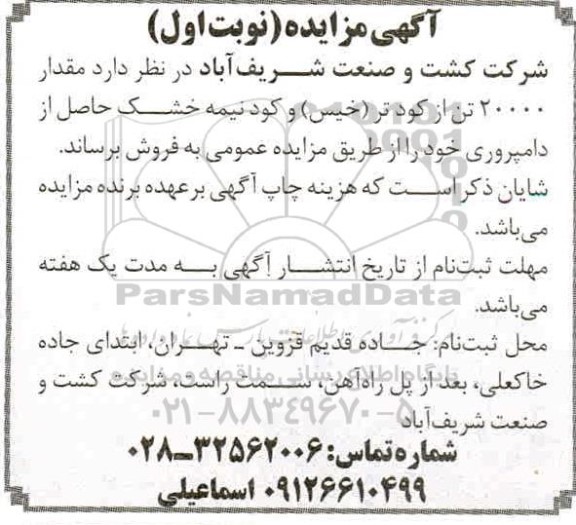 آگهی مزایده (نوبت اول)
شرکت کشت و صنعت شریف‌آباد در نظر دارد مقدار
۲۰۰۰۰ تن از کود تر (خیس) و کود نیمه خشک حاصل از
دامپروری خود را از طریق مزایده عمومی به فروش برساند.
شایان ذکر است که هزینه چاپ آگهی بر عهده برنده مزایده
می‌باشد.
مهلت ثبت‌نام از تاریخ انتشار آگهی به مدت یک هفته
ParsNamadData
می‌باشد.
محل ثبت‌نام: جاده قدیم قزوین ـ تهران، ابتدای جاده
پایگاه اطلاع رسانی مناقصه و مزایده
خاکعلی، بعد از پل راه‌آهن، سمت راست، شرکت کشت و
۰۲۱-۸۸۳۴۹۶۷۰-۵
صنعت شریف‌آباد
شماره تماس: ۳۲۵۶۲۰۰۶-۰۲۸
۰۹۱۲۶۶۱۰۴۹۹ اسماعیلی